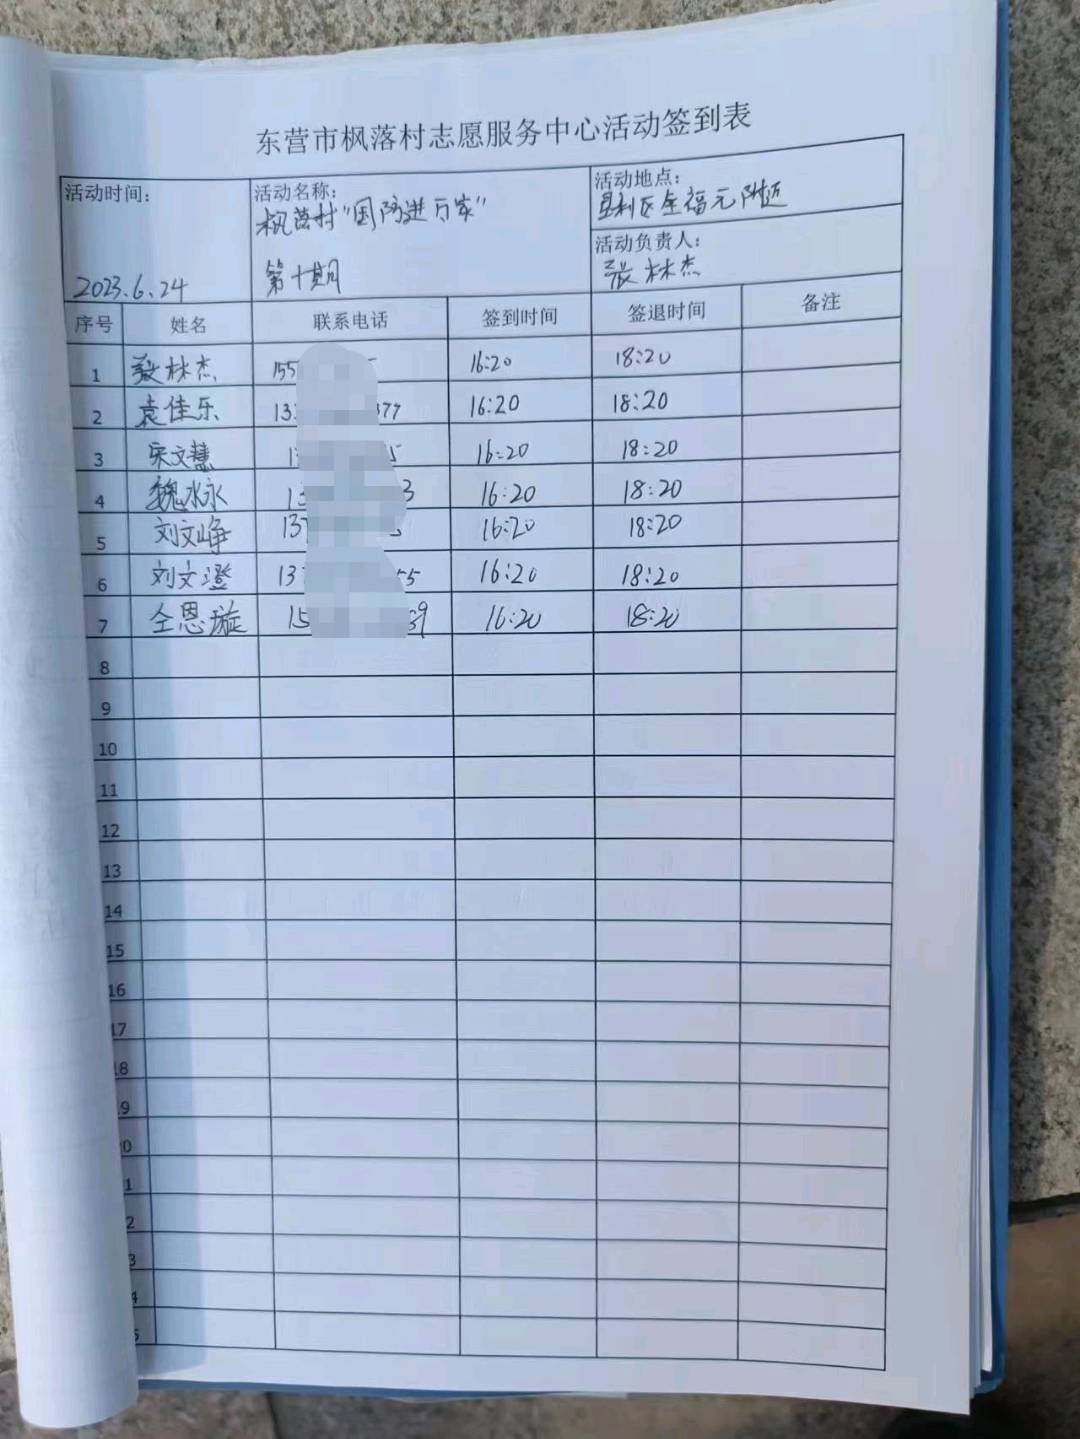 东营市枫落村志愿服务中心活动签到表
活动时间： 活动名称： 活动地点：
枫落村“国防进万家” 垦利区全福元附近
活动负责人：
2023.6.24 第十期 张林杰
序号 姓名 联系电话 签到时间 签退时间 备注
1 张林杰 155 5 16:20 18:20
2 袁佳乐 13 377 16:20 18:20
3 宋文慧 1 5 16:20 18:20
4 魏水永 13 3 16:20 18:20
5 刘文峥 137 16:20 18:20
6 刘文澄 13 55 16:20 18:20
7 仝恩璇 15 39 16:20 18:20
8
9
10
11
12
13
14
15
16
17
18
9
0
1
2
3
4
5